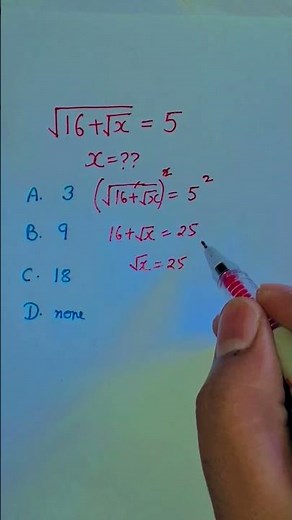 √(16+√x) = 5
x = ??
A. 3
B. 9
C. 18
D. none
(√(16+√x))² = 5²
16+√x = 25
√x = 25